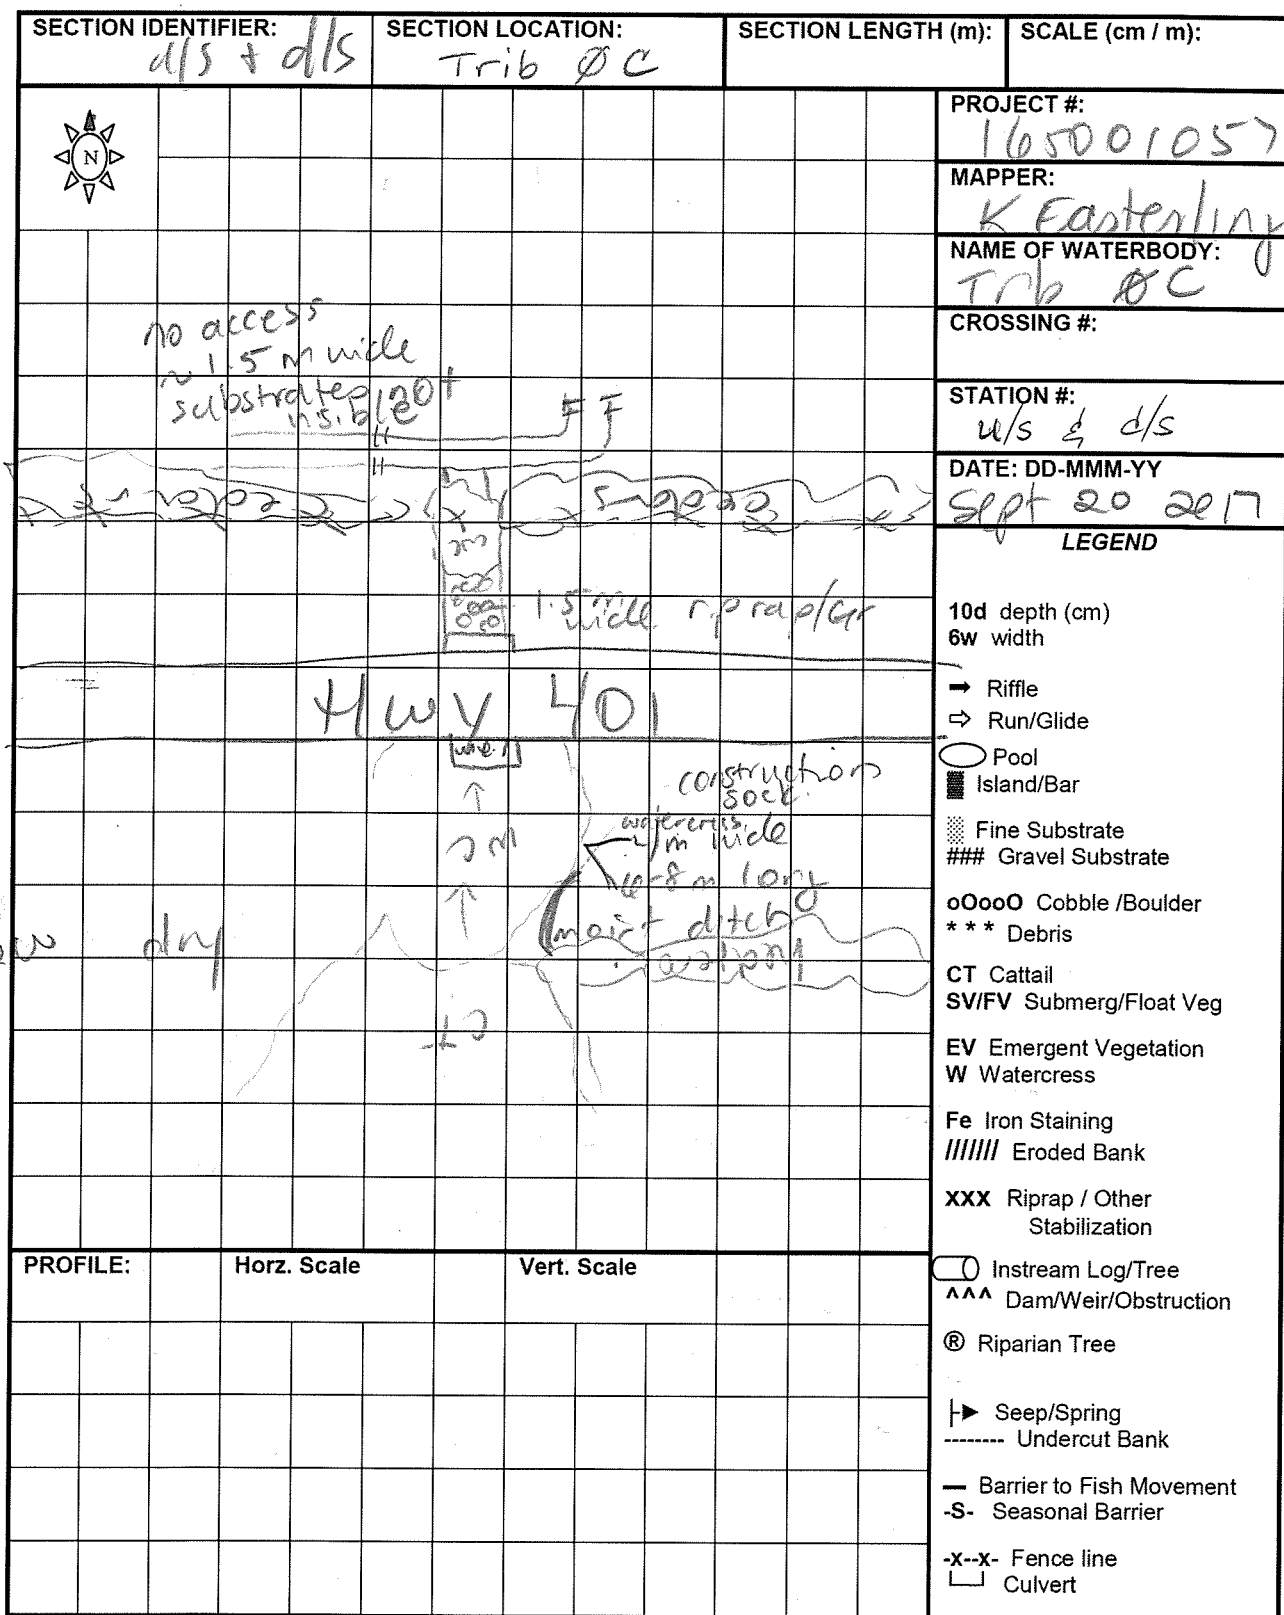 SECTION IDENTIFIER: d/s + d/s
SECTION LOCATION: Trib ØC
SECTION LENGTH (m):
SCALE (cm / m):
N
PROJECT #: 165001057
MAPPER: K Easterling
NAME OF WATERBODY: Trib ØC
CROSSING #:
STATION #: u/s & d/s
DATE: DD-MMM-YY Sept 20 2017
no access
~ 1.5 m wide
substrates not
visible
1.5 m wide rip rap/Gr
Hwy 401
construction
sock
watercress
~1 m wide
6-8 m long
moist ditch
dry
CT
LEGEND
10d depth (cm)
6w width
Riffle
Run/Glide
Pool
Island/Bar
Fine Substrate
### Gravel Substrate
oOooO Cobble /Boulder
* * * Debris
CT Cattail
SV/FV Submerg/Float Veg
EV Emergent Vegetation
W Watercress
Fe Iron Staining
/////// Eroded Bank
XXX Riprap / Other
Stabilization
Instream Log/Tree
^^^ Dam/Weir/Obstruction
® Riparian Tree
Seep/Spring
-------- Undercut Bank
Barrier to Fish Movement
-S- Seasonal Barrier
-x--x- Fence line
Culvert
PROFILE: Horz. Scale Vert. Scale